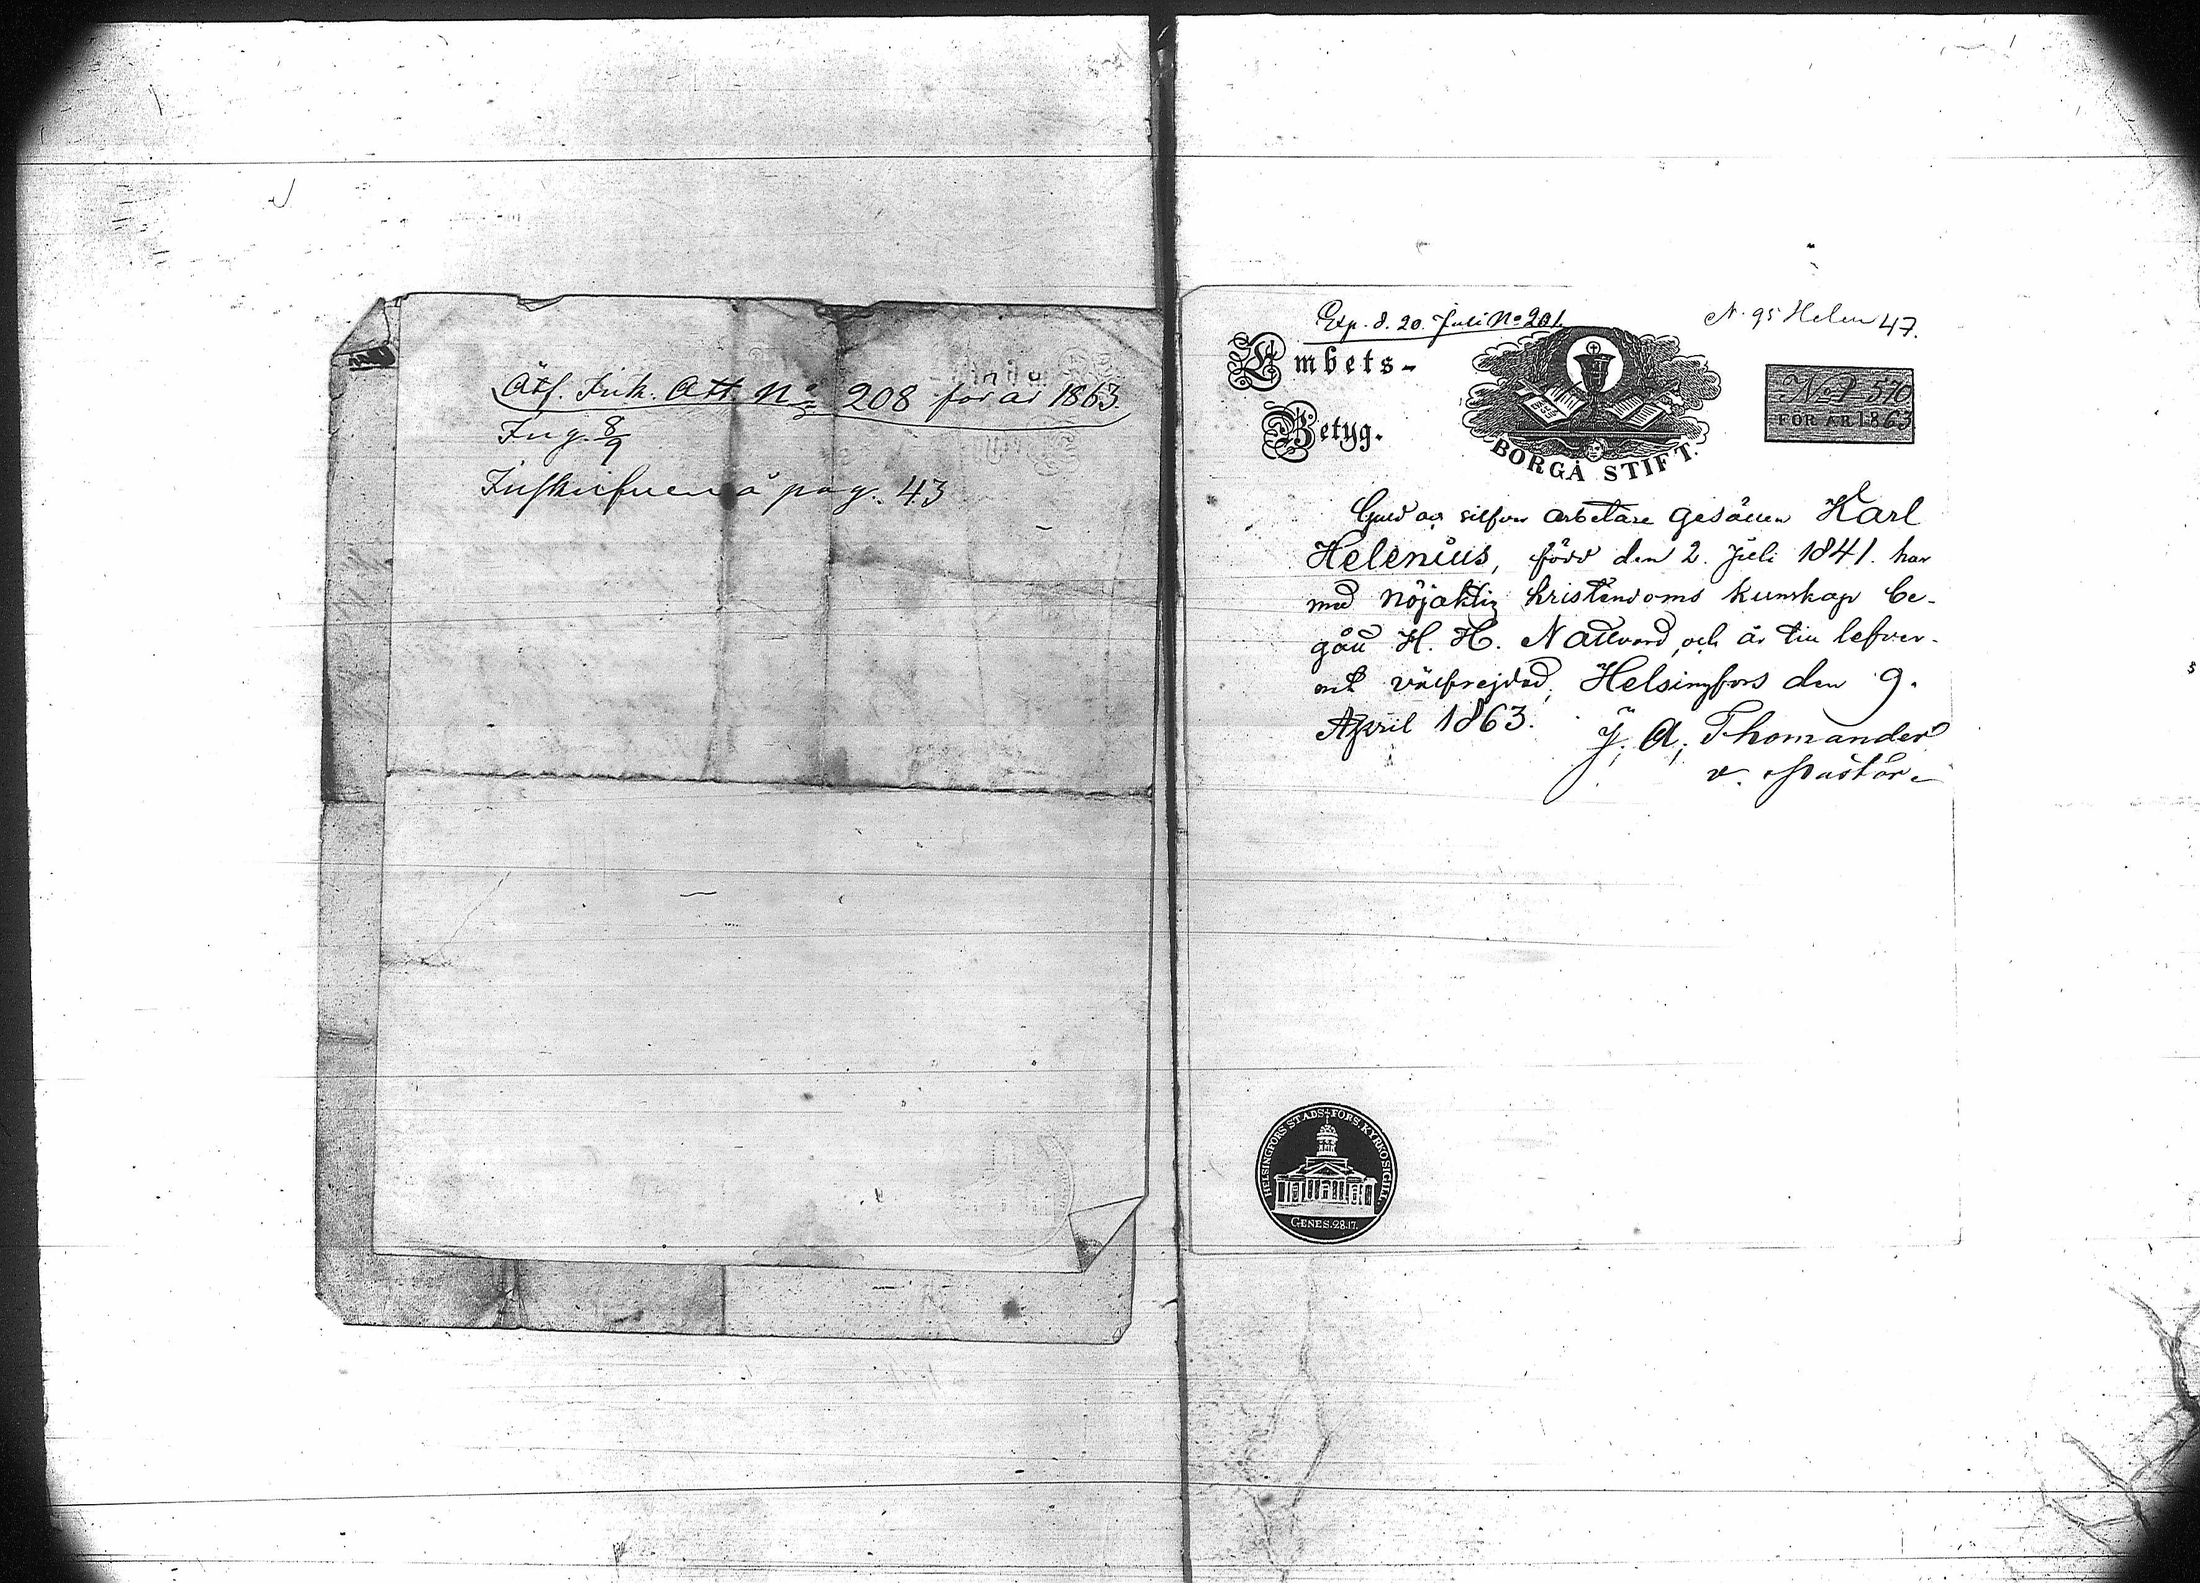 Åtf. Fink. Att. No 208 för år 1863.
Ing. 8/9
Inskrifven å pag. 43
Exp. d. 20. Juli No 201.
N. 95 Helen 47.
Embets-
Betyg.
BORGÅ STIFT.
No P 570
FÖR ÅR 1863
Guld og silfver arbetare Gesällen Karl
Helenius, född den 2. Juli 1841. har
med nöjaktig kristendoms kunskap be-
gått H. H. Nattvard, och är till lefver-
net välfrejdad, Helsingfors den 9.
April 1863.
J. A. Thomander
v. Pastor.
HELSINGFORS STADS FÖRS. KYRKOSIGILL.
GENES. 28.17.